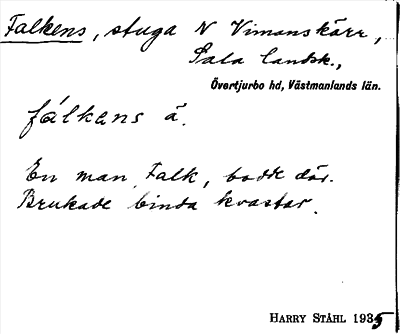 Falkens, stuga N Vimanskärr,
Sala landsk.,
Övertjurbo hd, Västmanlands län.
fálkans å.
En man, Falk, bodde där.
Brukade binda kvastar.
HARRY STÅHL 1935